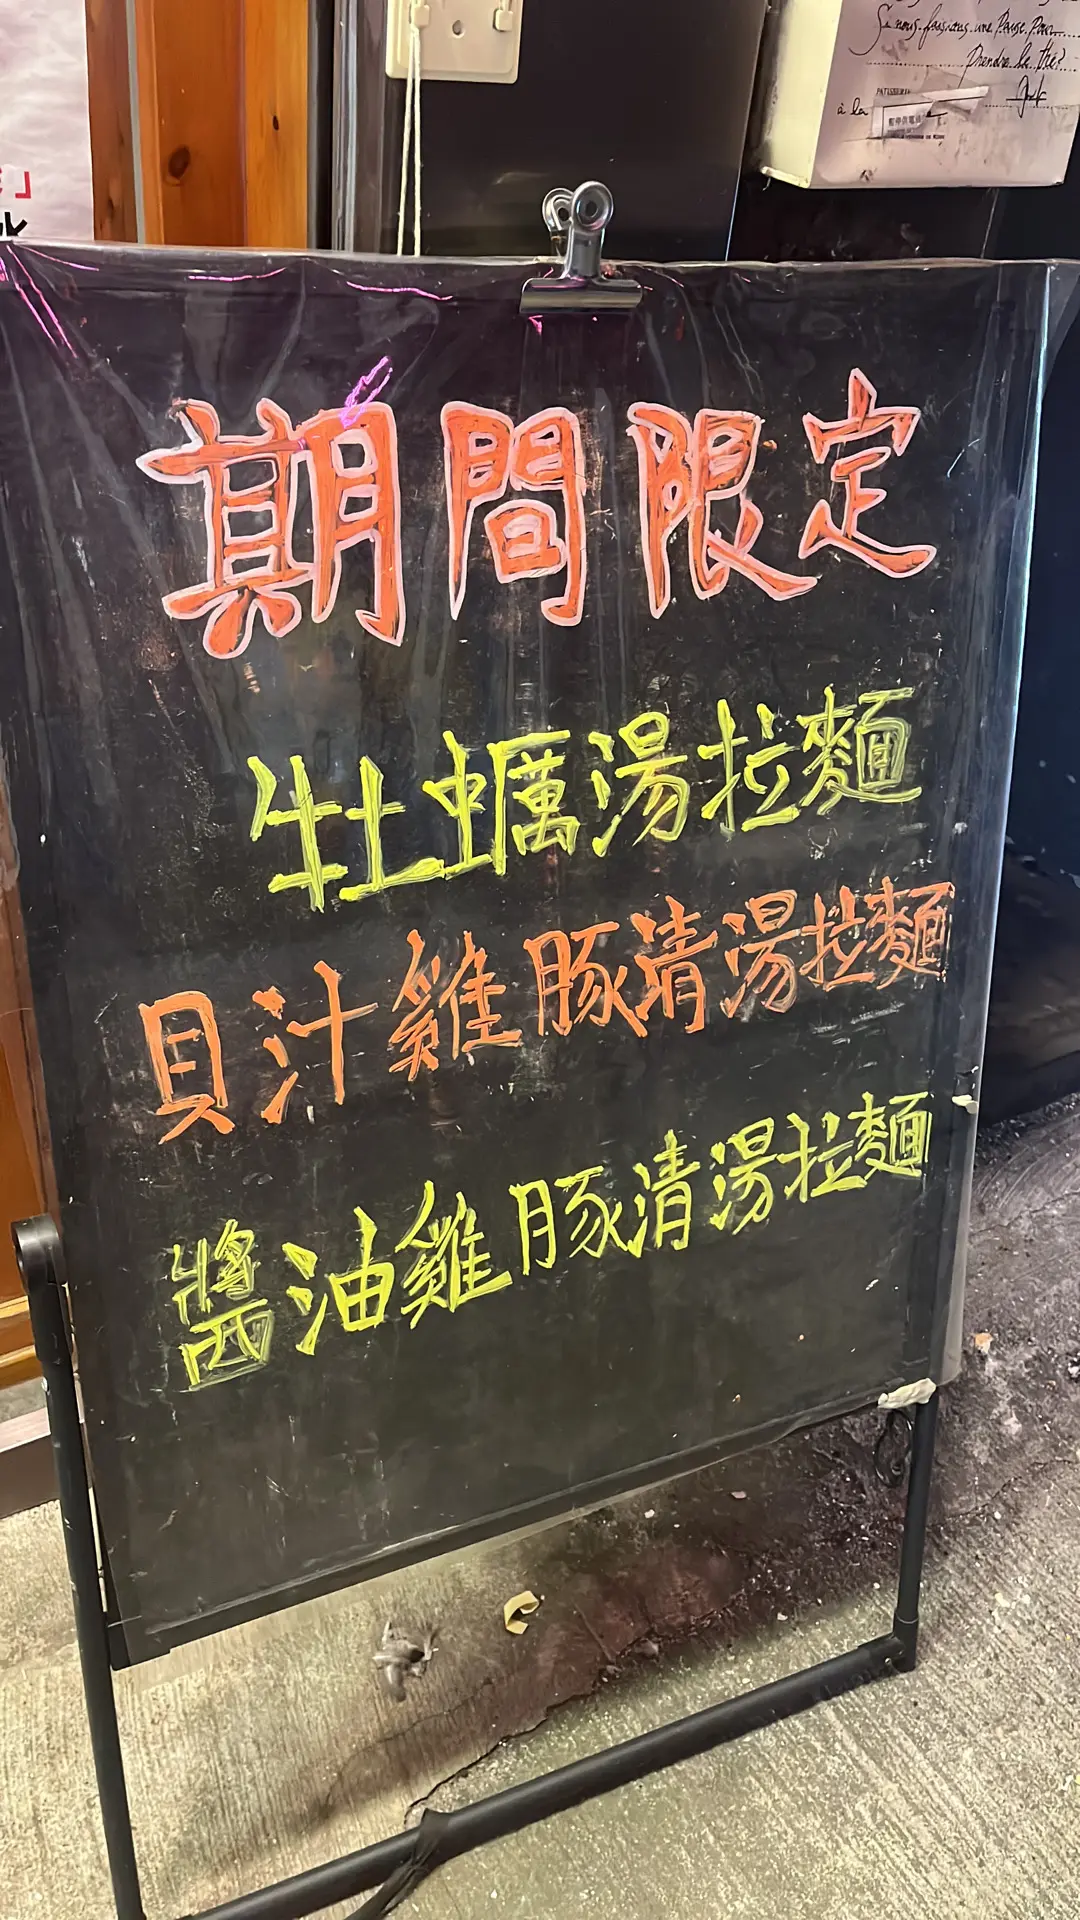 Si nous faisions une Pause Pour
Prendre le thé?
PATISSERIE
à la
期間限定
牡蠣湯拉麵
貝汁雞豚清湯拉麵
醬油雞豚清湯拉麵